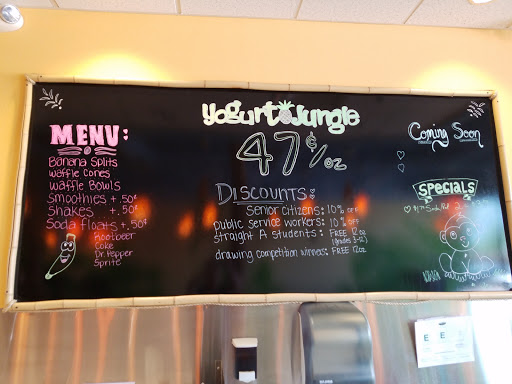 Yogurt Jungle
47¢/oz
MENU:
Banana Splits
Waffle Cones
Waffle Bowls
Smoothies +.50¢
Shakes +.50¢
Soda floats +.50¢
Rootbeer
Coke
Dr. Pepper
Sprite
DISCOUNTS:
Senior Citizens: 10% OFF
public service workers: 10% OFF
straight A students: FREE 12 oz
(grades 3-12)
drawing competition winners: FREE 12oz
Coming Soon
SPECIALS
E E